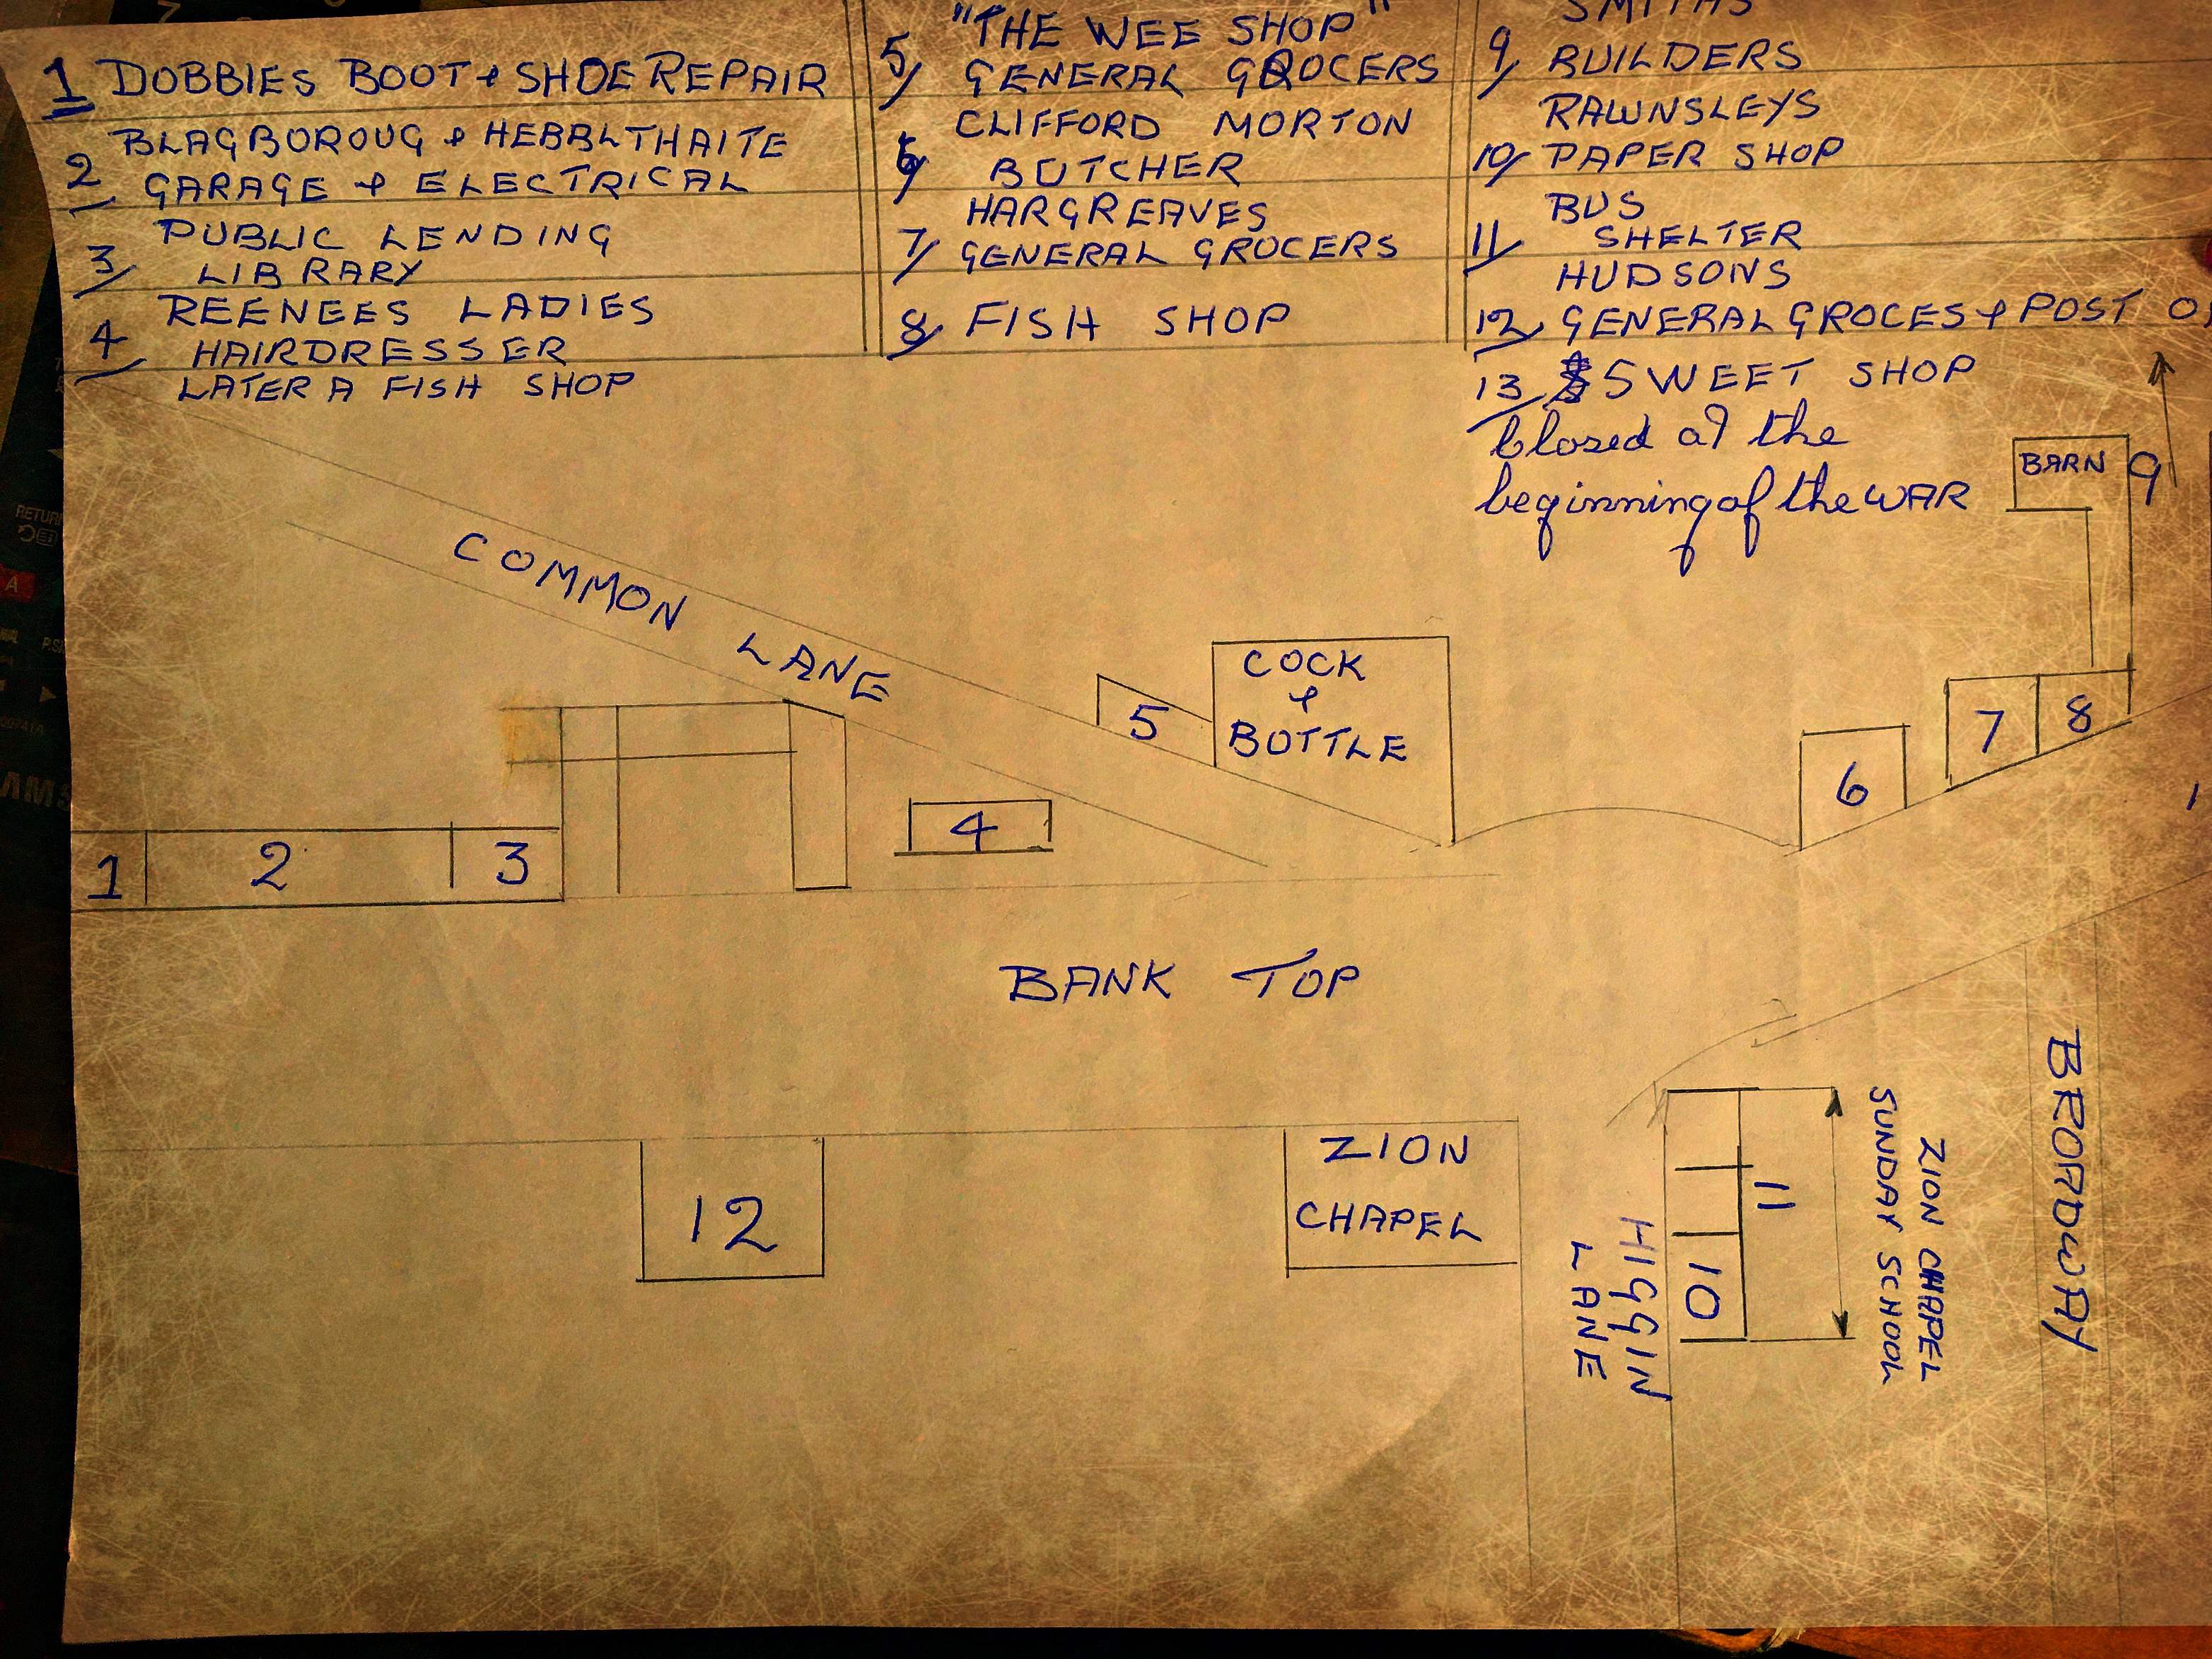 1 DOBBIES BOOT & SHOE REPAIR
BLAGBOROUG & HEBBLTHAITE
2/ GARAGE & ELECTRICAL
PUBLIC LENDING
3/ LIBRARY
REENEES LADIES
4/ HAIRDRESSER
LATER A FISH SHOP
"THE WEE SHOP"
5/ GENERAL GROCERS
CLIFFORD MORTON
6/ BUTCHER
HARGREAVES
7/ GENERAL GROCERS
8/ FISH SHOP
SMITHS
9/ BUILDERS
RAWNSLEYS
10/ PAPER SHOP
BUS
11/ SHELTER
HUDSONS
12/ GENERAL GROCES & POST
13/ SWEET SHOP
Closed at the
beginning of the WAR
BARN 9
COMMON LANE
COCK
&
BOTTLE
5
6
7
8
4
1
2
3
BANK TOP
12
ZION
CHAPEL
HIGGIN
LANE
10
11
ZION CHAPEL
SUNDAY SCHOOL
BRORDWAY